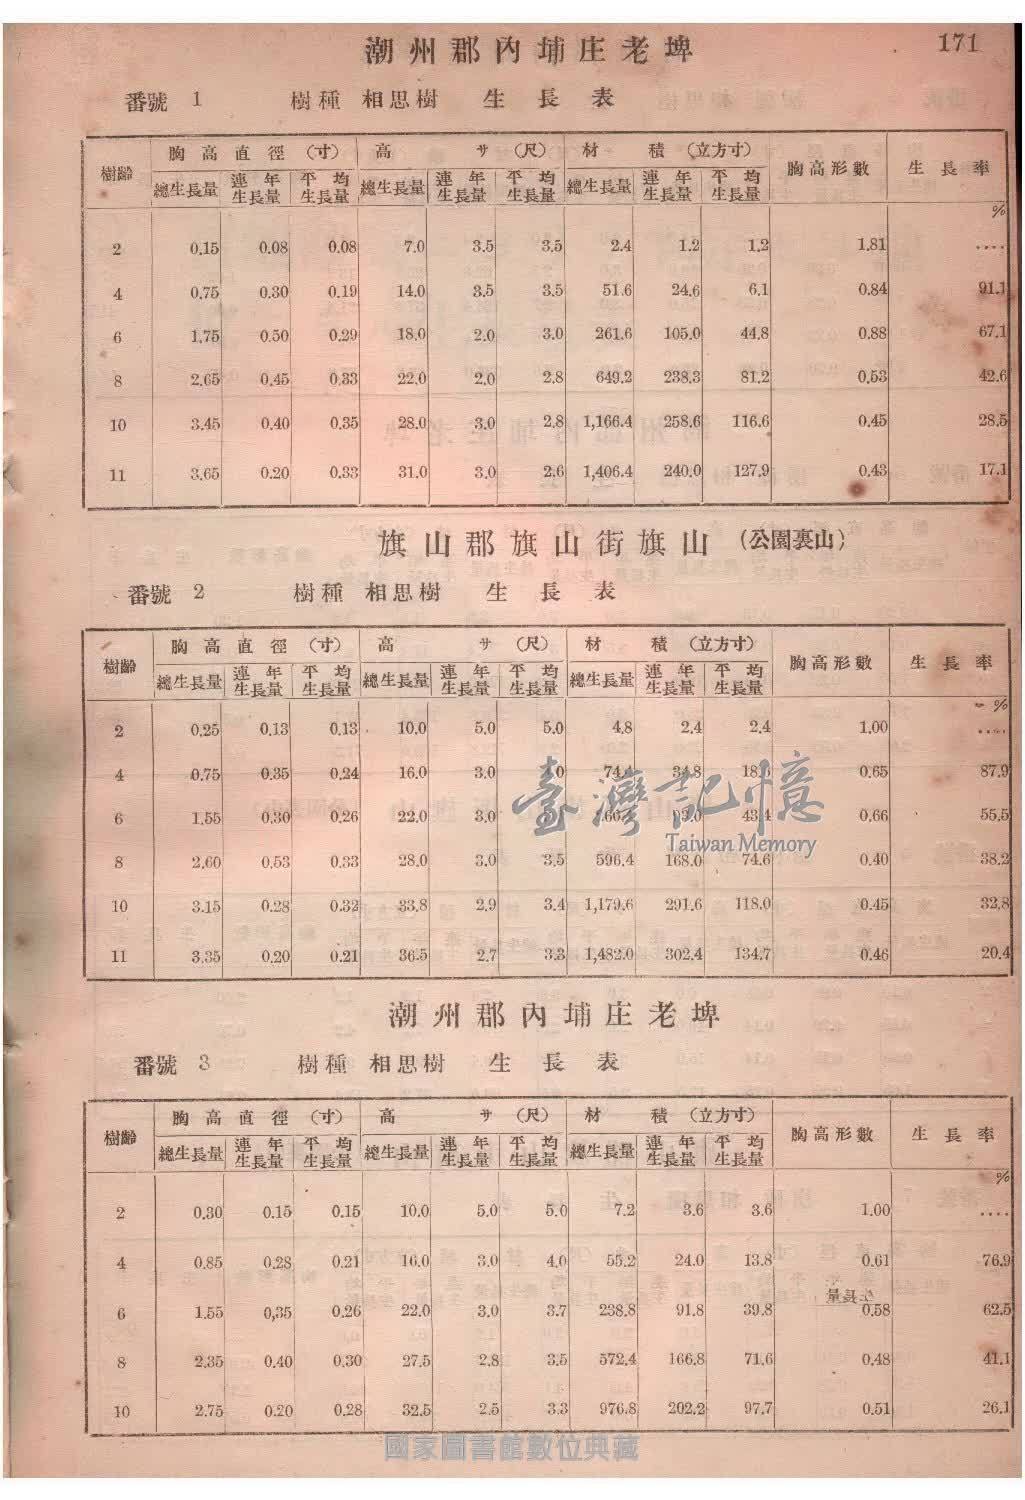 171
潮州郡內埔庄老埤
番號 1 樹種 相思樹 生長表
樹齡 胸高直徑（寸） 高サ（尺） 材積（立方寸） 胸高形數 生長率
總生長量 連年生長量 平均生長量 總生長量 連年生長量 平均生長量 總生長量 連年生長量 平均生長量
%
2 0.15 0.08 0.08 7.0 3.5 3.5 2.4 1.2 1.2 1.81 ....
4 0.75 0.30 0.19 14.0 3.5 3.5 51.6 24.6 6.1 0.84 91.1
6 1.75 0.50 0.29 18.0 2.0 3.0 261.6 105.0 44.8 0.88 67.1
8 2.65 0.45 0.33 22.0 2.0 2.8 649.2 238.3 81.2 0.53 42.6
10 3.45 0.40 0.35 28.0 3.0 2.8 1,166.4 258.6 116.6 0.45 28.5
11 3.65 0.20 0.33 31.0 3.0 2.6 1,406.4 240.0 127.9 0.43 17.1
旗山郡旗山街旗山（公園裏山）
番號 2 樹種 相思樹 生長表
樹齡 胸高直徑（寸） 高サ（尺） 材積（立方寸） 胸高形數 生長率
總生長量 連年生長量 平均生長量 總生長量 連年生長量 平均生長量 總生長量 連年生長量 平均生長量
%
2 0.25 0.13 0.13 10.0 5.0 5.0 4.8 2.4 2.4 1.00 ....
4 0.75 0.35 0.24 16.0 3.0 74.4 34.8 0.65 87.9
6 1.55 0.30 0.26 22.0 3.0 43.4 0.66 55.5
8 2.60 0.53 0.33 28.0 3.0 3.5 596.4 168.0 74.6 0.40 38.2
10 3.15 0.28 0.32 33.8 2.9 3.4 1,179.6 291.6 118.0 0.45 32.8
11 3.35 0.20 0.21 36.5 2.7 3.3 1,482.0 302.4 134.7 0.46 20.4
臺灣記憶
Taiwan Memory
潮州郡內埔庄老埤
番號 3 樹種 相思樹 生長表
樹齡 胸高直徑（寸） 高サ（尺） 材積（立方寸） 胸高形數 生長率
總生長量 連年生長量 平均生長量 總生長量 連年生長量 平均生長量 總生長量 連年生長量 平均生長量
%
2 0.30 0.15 0.15 10.0 5.0 5.0 7.2 3.6 3.6 1.00 ....
4 0.85 0.28 0.21 16.0 3.0 4.0 55.2 24.0 13.8 0.61 76.9
6 1.55 0.35 0.26 22.0 3.0 3.7 238.8 91.8 39.8 0.58 62.5
8 2.35 0.40 0.30 27.5 2.8 3.5 572.4 166.8 71.6 0.48 41.1
10 2.75 0.20 0.28 32.5 2.5 3.3 976.8 202.2 97.7 0.51 26.1
國家圖書館數位典藏